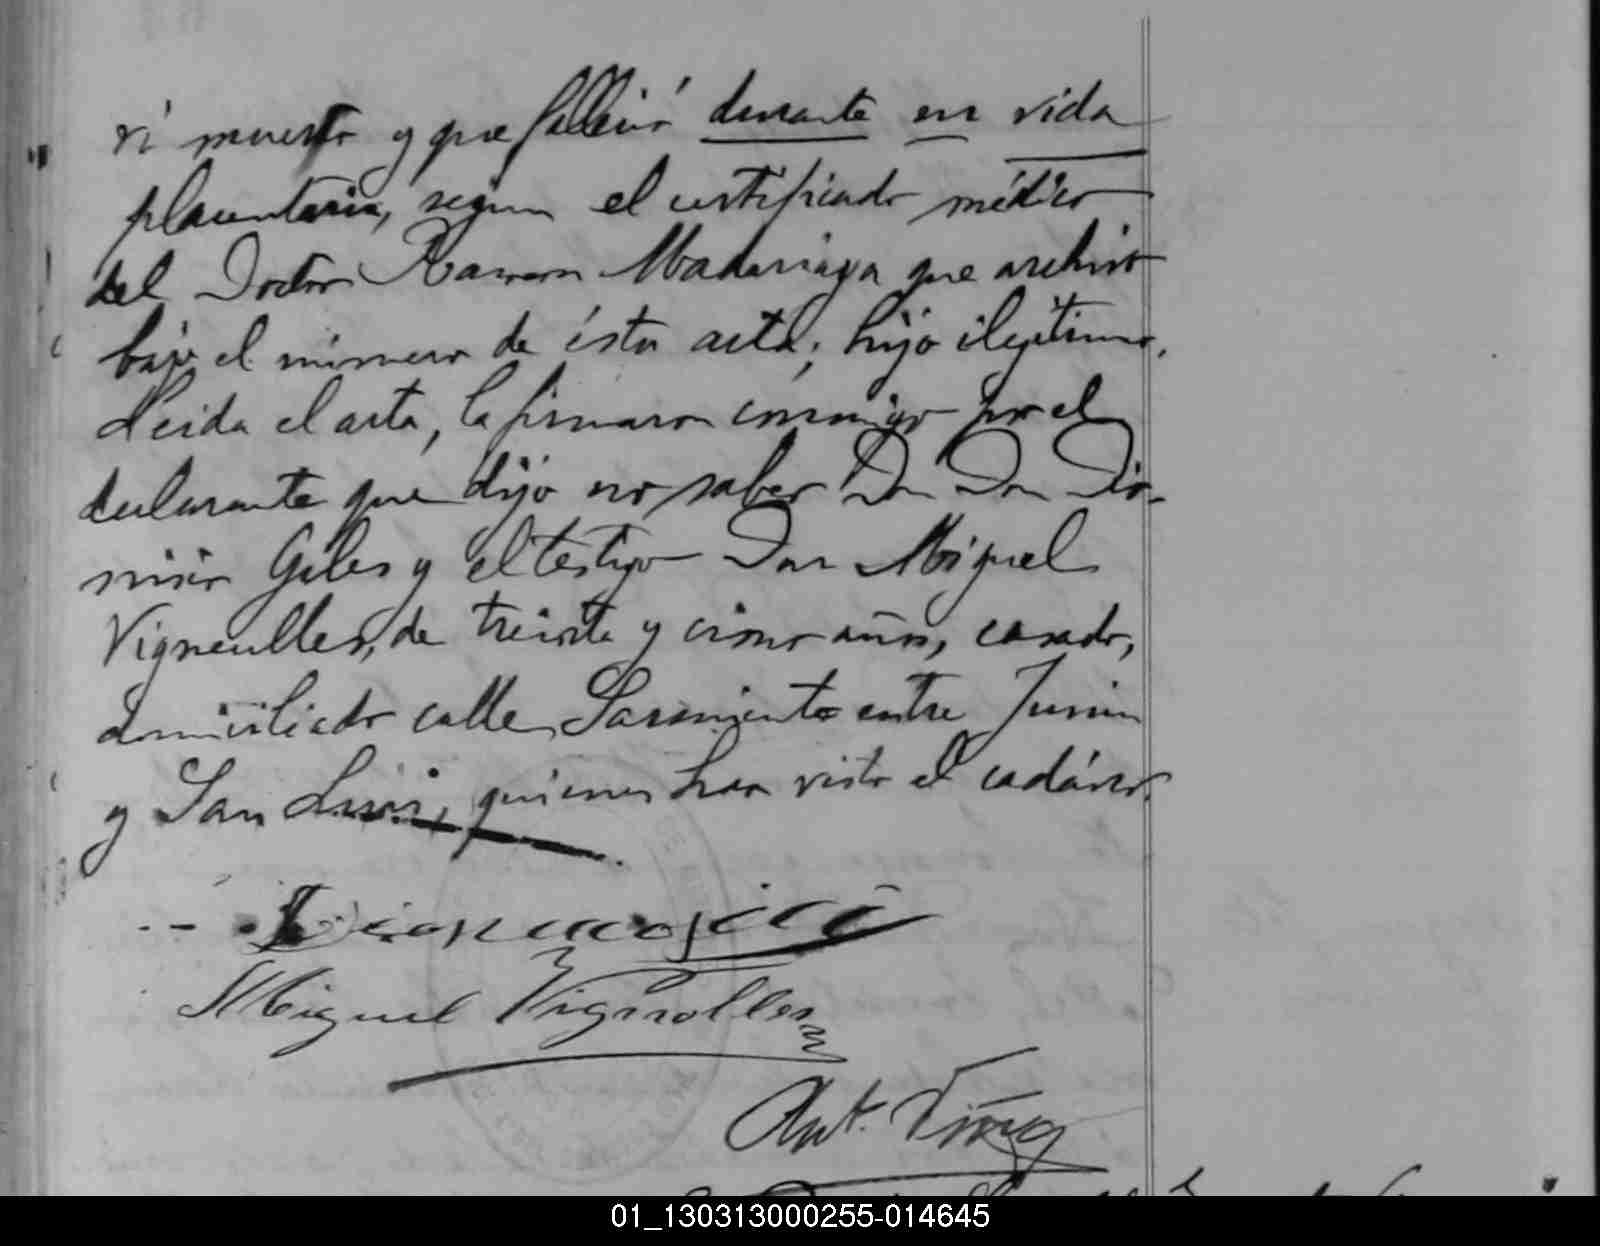 ví muerto y que falleció durante en vida
placentaria, segun el certificado médico
del Doctor Ramon Madariaga que archivo
bajo el número de ésta acta; hijo ilegítimo.
Leida el acta, la firmaron conmigo por el
declarante que dijo no saber Don Dio-
nisio Giles y el testigo Don Miguel
Vigneulles, de treinta y cinco años, casado,
domiciliado calle Sarmiento entre Junin
y San Luis, quienes han visto el cadáver.
Miguel Vignolles
Ant.
01_130313000255-014645